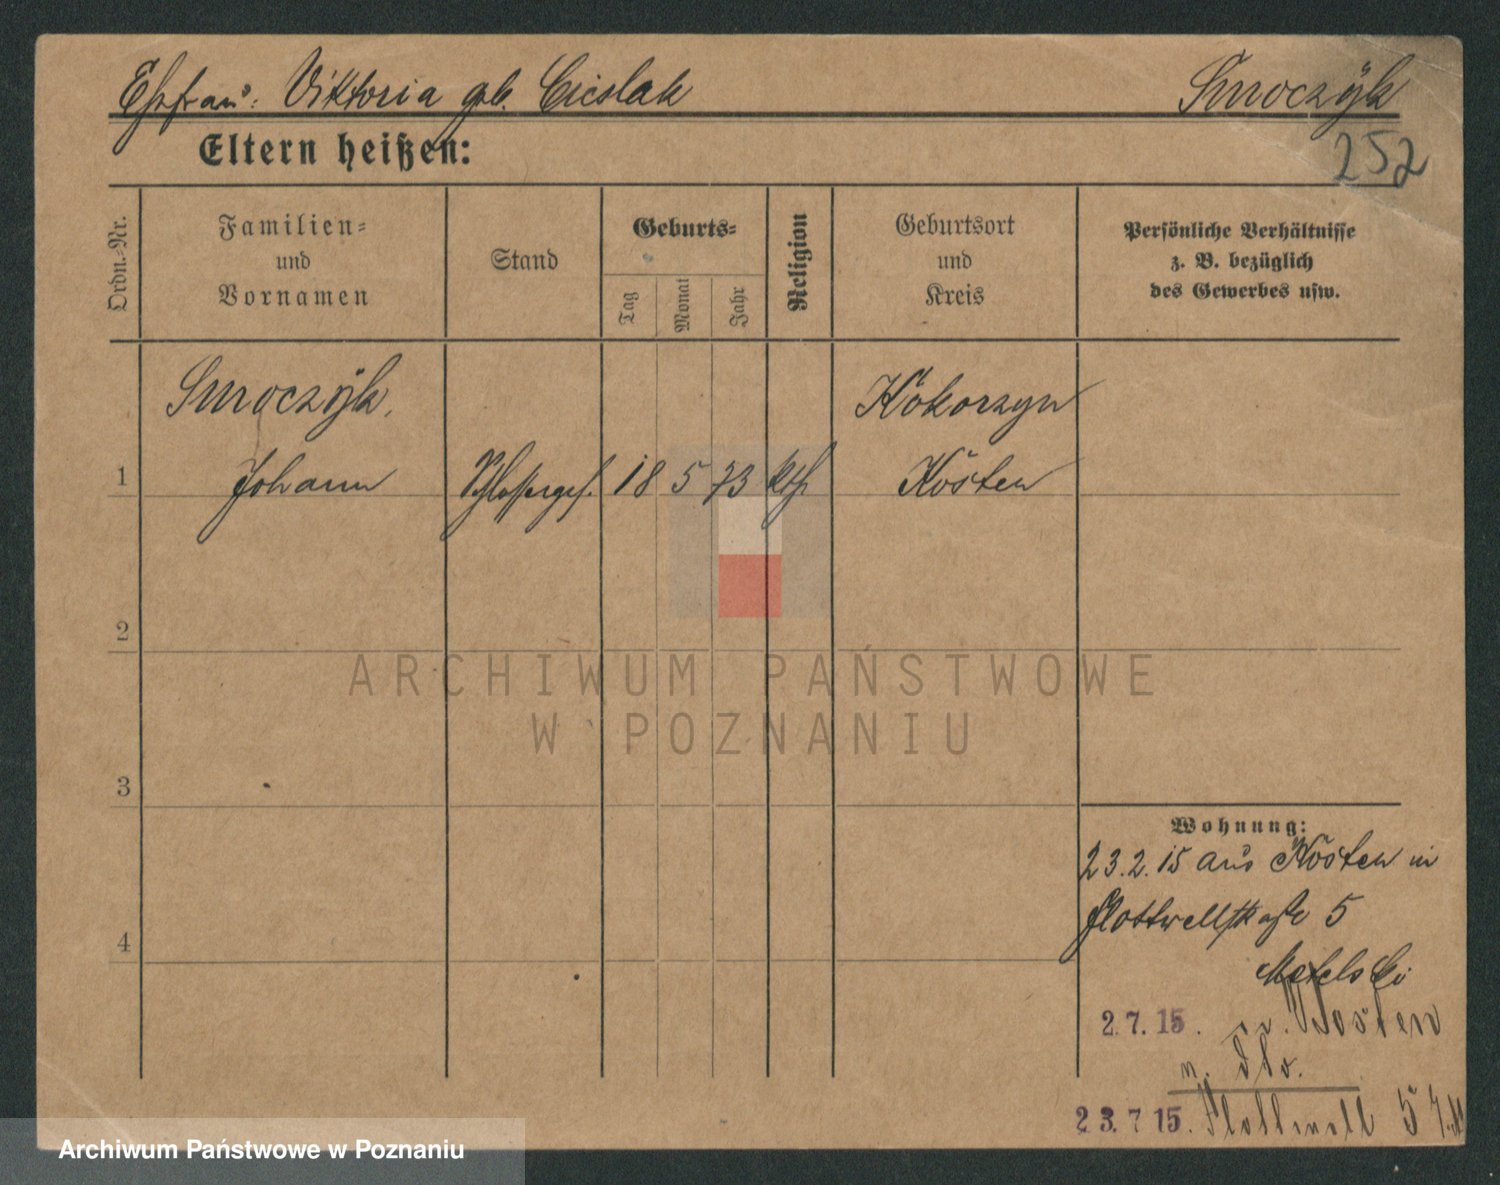 Ehefrau: Viktoria geb. Cieslak Smoczÿk
252
Eltern heißen:
Ordn.-Nr. Familien- und Vornamen Stand Geburts- Tag Monat Jahr Religion Geburtsort und Kreis Persönliche Verhältnisse z. B. bezüglich des Gewerbes usw.
Smoczÿk, Kokorzyn
1 Johann Schlosserges. 18 5 73 kth Kosten
2
3
4
Wohnung:
23.2.15 aus Kosten in
Flottwellstraße 5
Metelski
2.7.15. Kosten
n.
23.7 15. Flottwell 5
ARCHIWUM PAŃSTWOWE
W POZNANIU
Archiwum Państwowe w Poznaniu